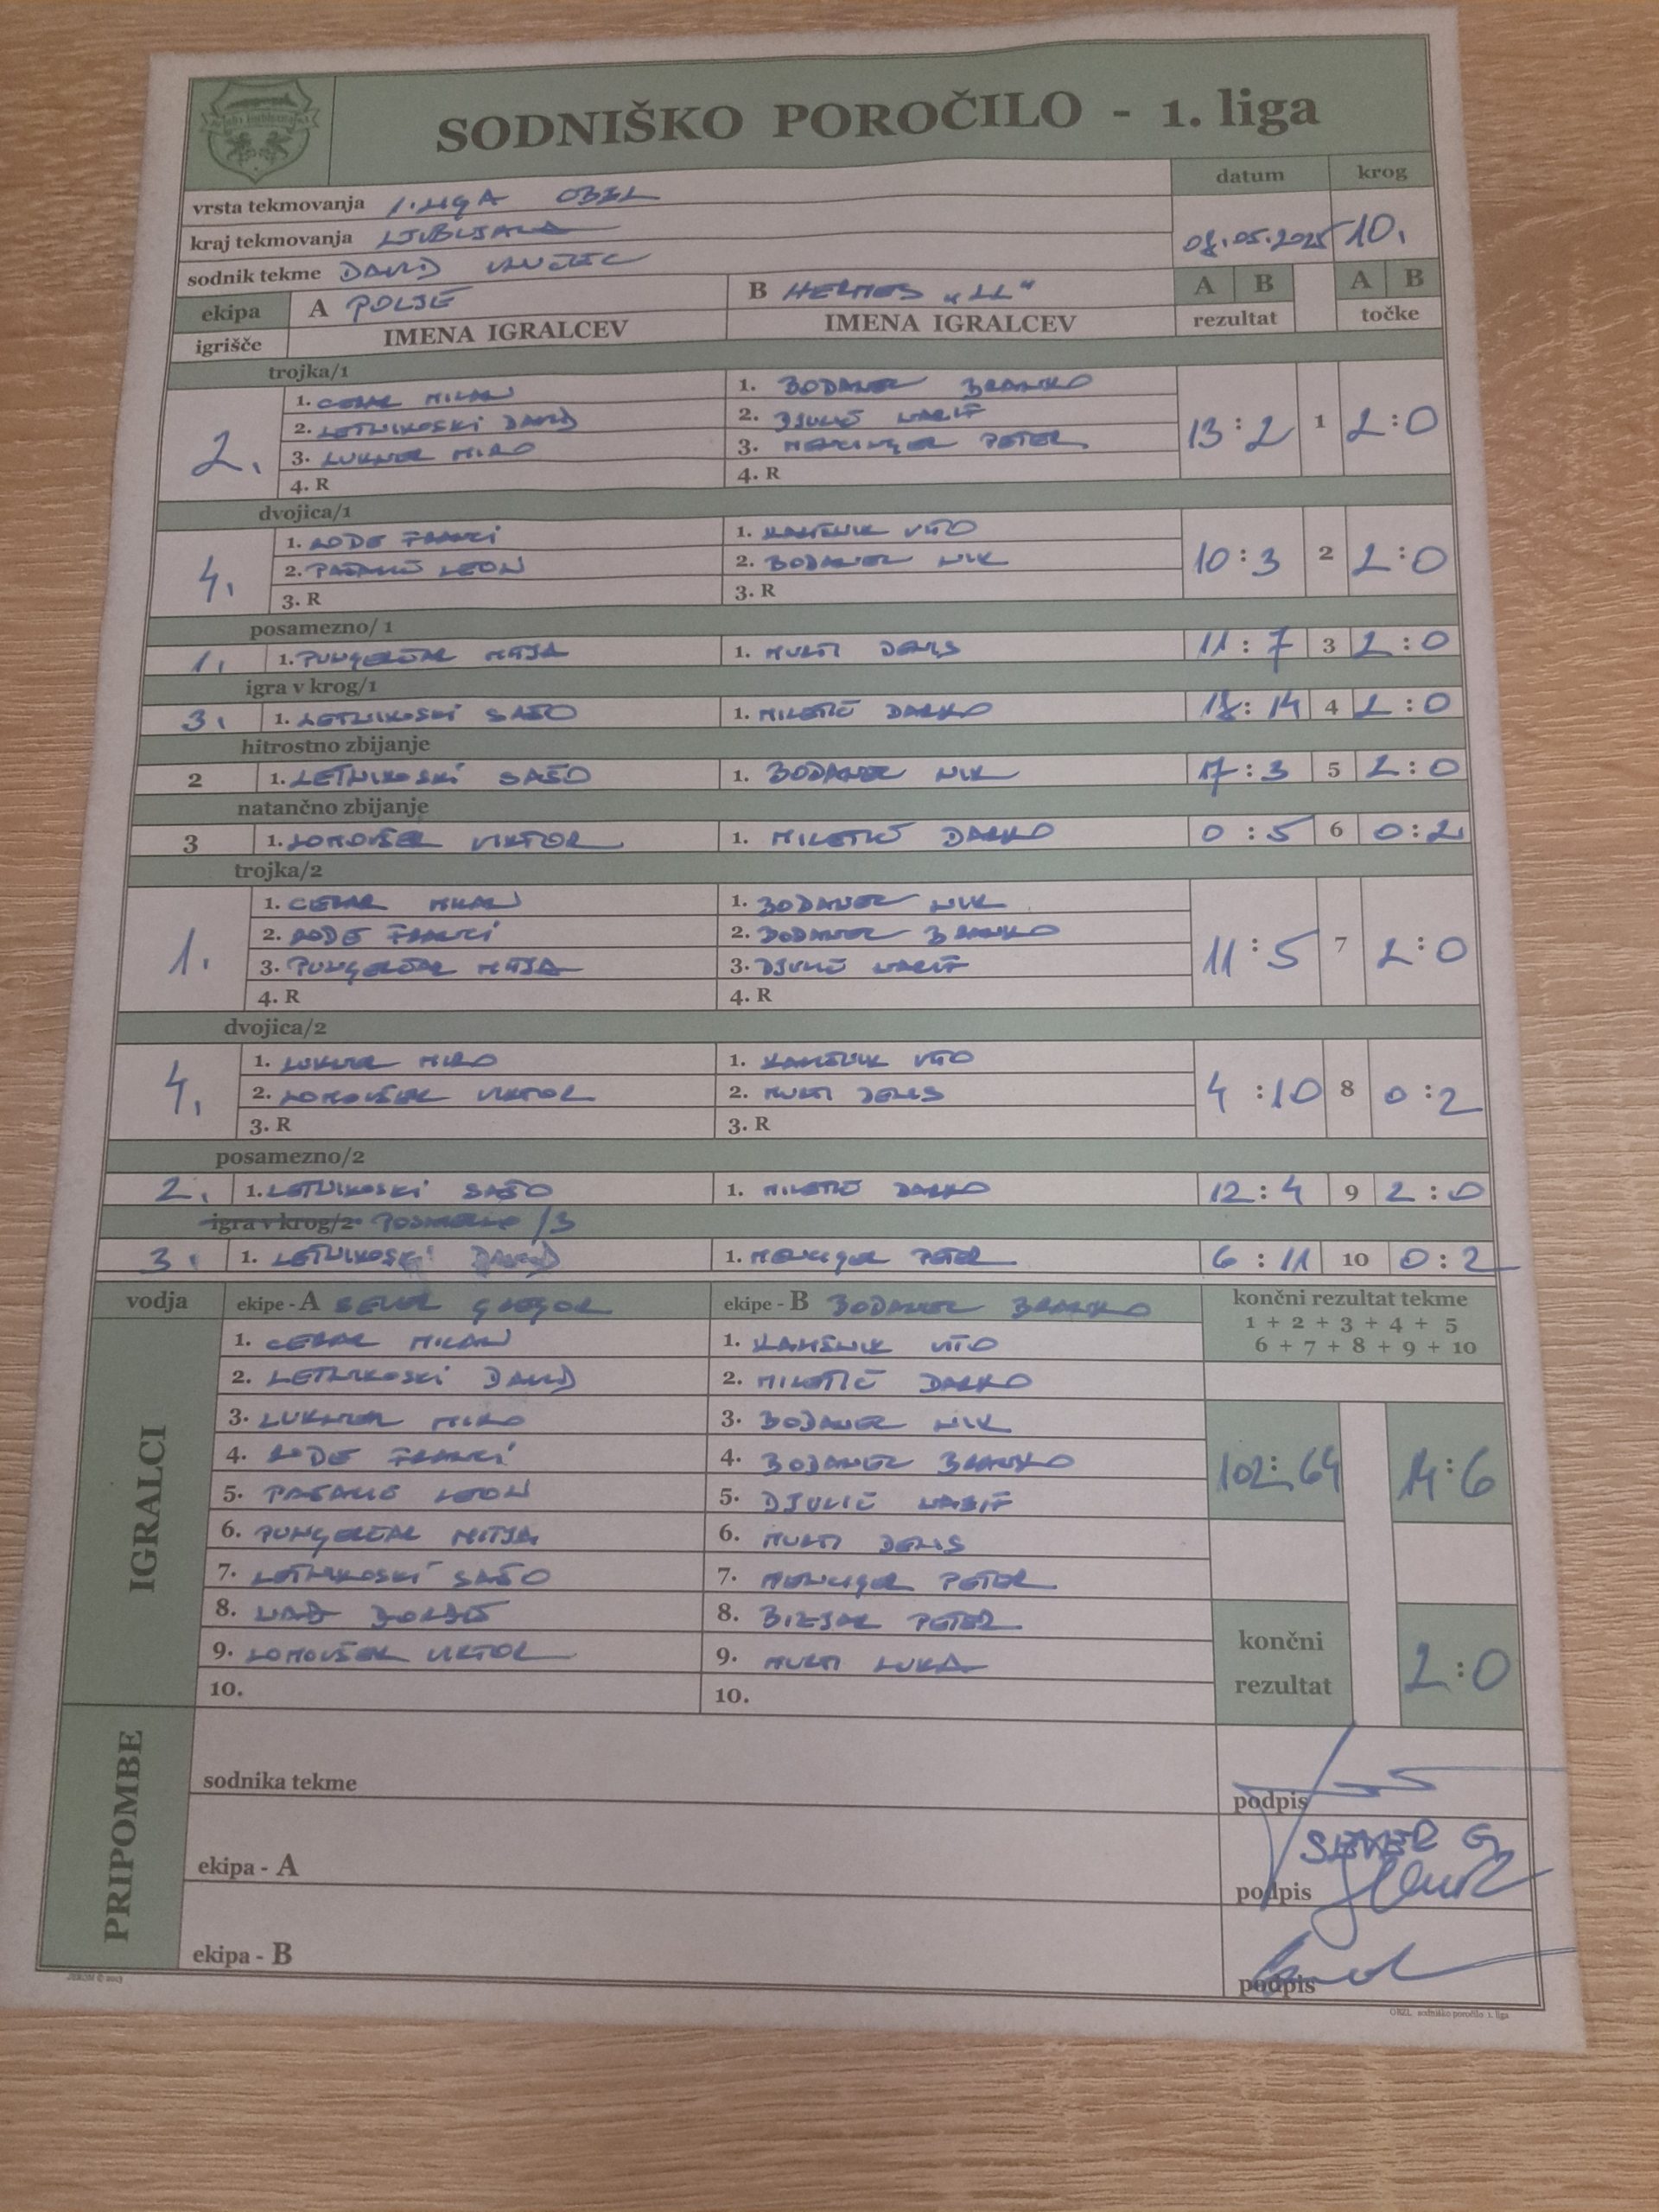 SODNIŠKO POROČILO - 1. liga
datum krog
vrsta tekmovanja 1. LIGA OBZL
kraj tekmovanja LJUBLJANA
08.05.2025 10.
sodnik tekme DAVID
ekipa A POLJE B HERMES „LL“ A B A B
igrišče IMENA IGRALCEV IMENA IGRALCEV rezultat točke
trojka/1
2. 13 : 2 1 2 : 0
1. CEBAR MILAN 1. BODANEC BRANKO
2. LETNIKOSKI DAVID 2. DJULIČ NAZIF
3. LUKNER MIRO 3. MENCINGER PETER
4. R 4. R
dvojica/1
4. 10 : 3 2 2 : 0
1. RODE FRANCI 1. KAMŠNIK VITO
2. LEON 2. BODANEC NIK
3. R 3. R
posamezno/ 1
1. 1. PUNGERČAR MITJA 1. MURTI DENIS 11 : 7 3 2 : 0
igra v krog/1
3. 1. LETNIKOSKI SAŠO 1. MILETIČ DARKO 18 : 14 4 2 : 0
hitrostno zbijanje
2 1. LETNIKOSKI SAŠO 1. BODANEC NIK 17 : 3 5 2 : 0
natančno zbijanje
3 1. LOMOVŠEK VIKTOR 1. MILETIČ DARKO 0 : 5 6 0 : 2
trojka/2
1. 11 : 5 7 2 : 0
1. CEBAR MILAN 1. BODANEC NIK
2. RODE FRANCI 2. BODANEC BRANKO
3. PUNGERČAR MITJA 3. DJULIČ NAZIF
4. R 4. R
dvojica/2
4. 4 : 10 8 0 : 2
1. LUKNER MIRO 1. KAMŠNIK VITO
2. LOMOVŠEK VIKTOR 2. MURTI DENIS
3. R 3. R
posamezno/2
2. 1. LETNIKOSKI SAŠO 1. MILETIČ DARKO 12 : 4 9 2 : 0
igra v krog/2 POSAMEZNO /3
3. 1. LETNIKOSKI DAVID 1. MENCIGER PETER 6 : 11 10 0 : 2
vodja ekipe - A SEVER GREGOR ekipe - B BODANEC BRANKO končni rezultat tekme
1 + 2 + 3 + 4 + 5
6 + 7 + 8 + 9 + 10
IGRALCI
1. CEBAR MILAN 1. KAMŠNIK VITO
2. LETNIKOSKI DAVID 2. MILETIČ DARKO
3. LUKNER MIRO 3. BODANEC NIK
4. RODE FRANCI 4. BODANEC BRANKO
102 : 64 14 : 6
5. LEON 5. DJULIČ NAZIF
6. PUNGERČAR MITJA 6. MURTI DENIS
7. LETNIKOSKI SAŠO 7. MENCIGER PETER
8. 8. BIZJAK PETER
9. LOMOVŠEK VIKTOR 9. MURTI LUKA
10. 10.
končni rezultat 2 : 0
PRIPOMBE
sodnika tekme podpis
SEVER G.
ekipa - A podpis
ekipa - B podpis
OBZL, sodniško poročilo 1. liga